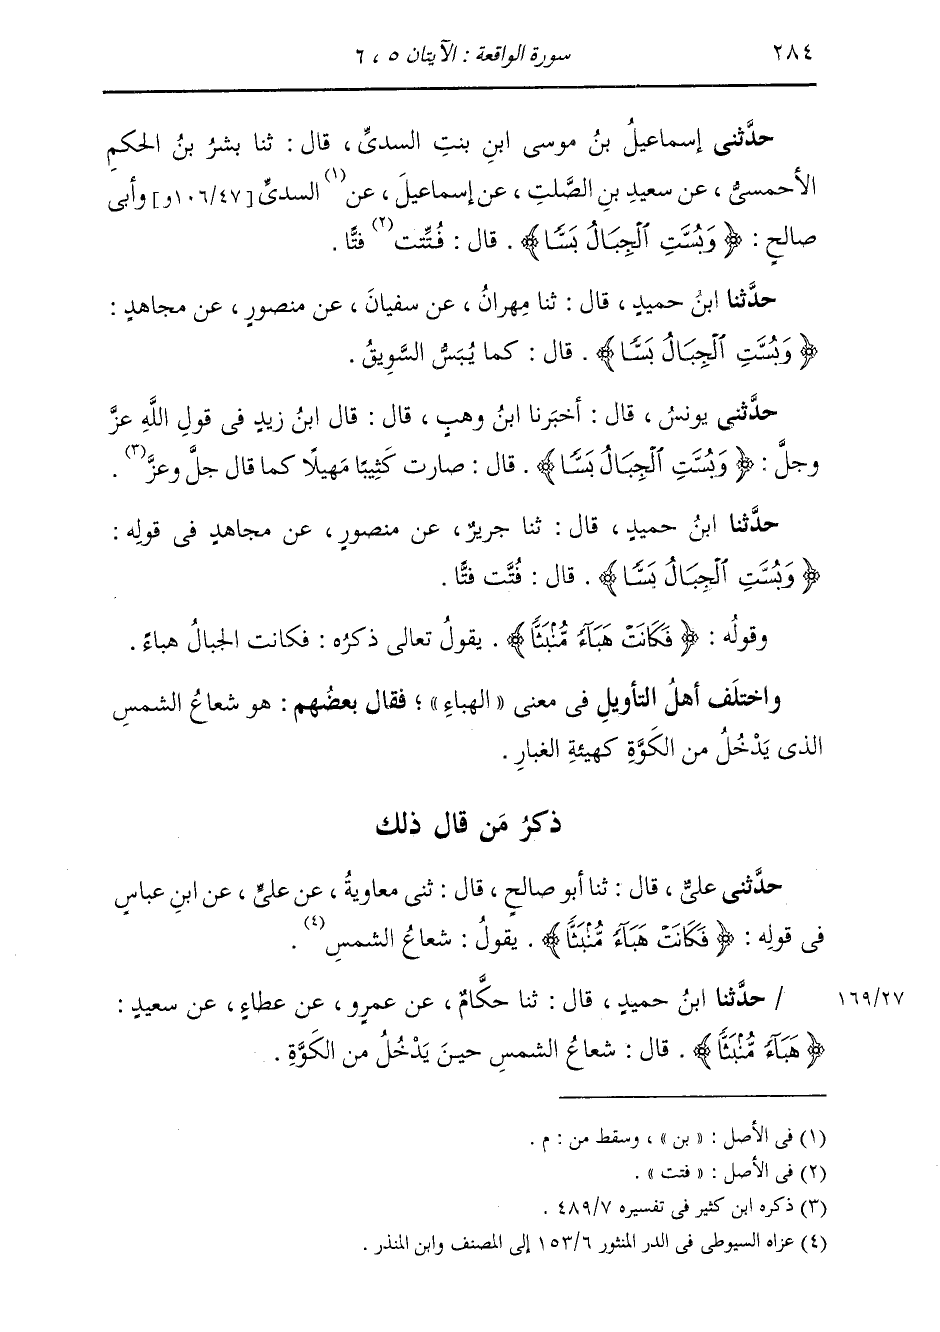 ٢٨٤ سورة الواقعة : الآيتان ٥ ، ٦
حدَّثنى إسماعيلُ بنُ موسى ابنِ بنتِ السدىِّ ، قال : ثنا بشرُ بنُ الحكمِ
الأحمسىُّ ، عن سعيدِ بنِ الصَّلتِ ، عن إسماعيلَ ، عن(١) السدىِّ [٤٧/ ١٠٦و] وأبى
صالحٍ : ﴿ وَبُسَّتِ ٱلْجِبَالُ بَسًّا ﴾ . قال : فُتِّتت(٢) فتًّا .
حدَّثنا ابنُ حميدٍ ، قال : ثنا مِهرانُ ، عن سفيانَ ، عن منصورٍ ، عن مجاهدٍ :
﴿ وَبُسَّتِ ٱلْجِبَالُ بَسًّا ﴾ . قال : كما يُبَسُّ السَّوِيقُ .
حدَّثنى يونسُ ، قال : أخبَرنا ابنُ وهبٍ ، قال : قال ابنُ زيدٍ فى قولِ اللَّهِ عزَّ
وجلَّ : ﴿ وَبُسَّتِ ٱلْجِبَالُ بَسًّا ﴾ . قال : صارت كَثِيبًا مَهيلًا كما قال جلَّ وعزَّ(٣) .
حدَّثنا ابنُ حميدٍ ، قال : ثنا جريرٌ ، عن منصورٍ ، عن مجاهدٍ فى قولِه :
﴿ وَبُسَّتِ ٱلْجِبَالُ بَسًّا ﴾ . قال : فُتَّت فتًّا .
وقولُه : ﴿ فَكَانَتْ هَبَآءً مُّنۢبَثًّا ﴾ . يقولُ تعالى ذكرُه : فكانت الجبالُ هباءً .
واختلَف أهلُ التأويلِ فى معنى « الهباءِ » ؛ فقال بعضُهم : هو شعاعُ الشمسِ
الذى يَدْخُلُ من الكَوَّةِ كهيئةِ الغبارِ .
ذكرُ مَن قال ذلك
حدَّثنى علىٌّ ، قال : ثنا أبو صالحٍ ، قال : ثنى معاويةُ ، عن علىٍّ ، عن ابنِ عباسٍ
فى قولِه : ﴿ فَكَانَتْ هَبَآءً مُّنۢبَثًّا ﴾ . يقولُ : شعاعُ الشمسِ(٤) .
١٦٩/٢٧ / حدَّثنا ابنُ حميدٍ ، قال : ثنا حكَّامٌ ، عن عمرٍو ، عن عطاءٍ ، عن سعيدٍ :
﴿ هَبَآءً مُّنۢبَثًّا ﴾ . قال : شعاعُ الشمسِ حينَ يَدْخُلُ من الكَوَّةِ .
(١) فى الأصل : « بن » ، وسقط من : م .
(٢) فى الأصل : « فتت » .
(٣) ذكره ابن كثير فى تفسيره ٧/ ٤٨٩ .
(٤) عزاه السيوطى فى الدر المنثور ٦/ ١٥٣ إلى المصنف وابن المنذر .